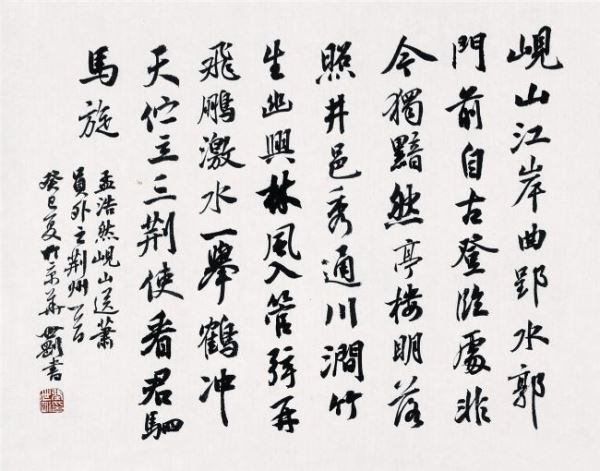 峴山江岸曲郢水郭
門前自古登臨處非
今獨黯然亭樓明落
照井邑秀通川澗竹
生幽興林風入管弦再
飛鵬激水一舉鶴冲
天伫立三荊使看君駟
馬旋
孟浩然峴山送蕭
員外之荊州一首
癸巳夏於京華世書